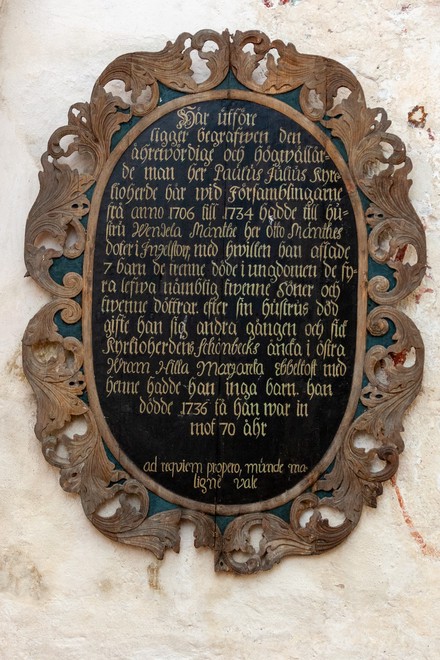 Hår ùtföre
ligger begrafwen den
åhretvördige och Högwällär-
de man her Paùlùs Jùliùs Kyr-
kioherde hår wid Församblingarne
frå anno 1706 till 1734 hadde till hù-
strù Wendela Månthe her Otto Månthes
doter i Ingelstorp, med hwilken han aflade
7 barn de trenne döde i ùngdomen de fy-
ra lefwa nämblig twenne Söner och
twenne döttrar. efter sin hùstrùs död
gifte han sig andra gången och fick
Kyrkioherdens Schönbecks äncka i östra
Wram Hilla Margareta Ebbeltoft med
henne hadde han inga barn. han
dödde 1736 få han war in
mot 70 åhr
ad reqviem propero, mùnde ma-
ligne vale